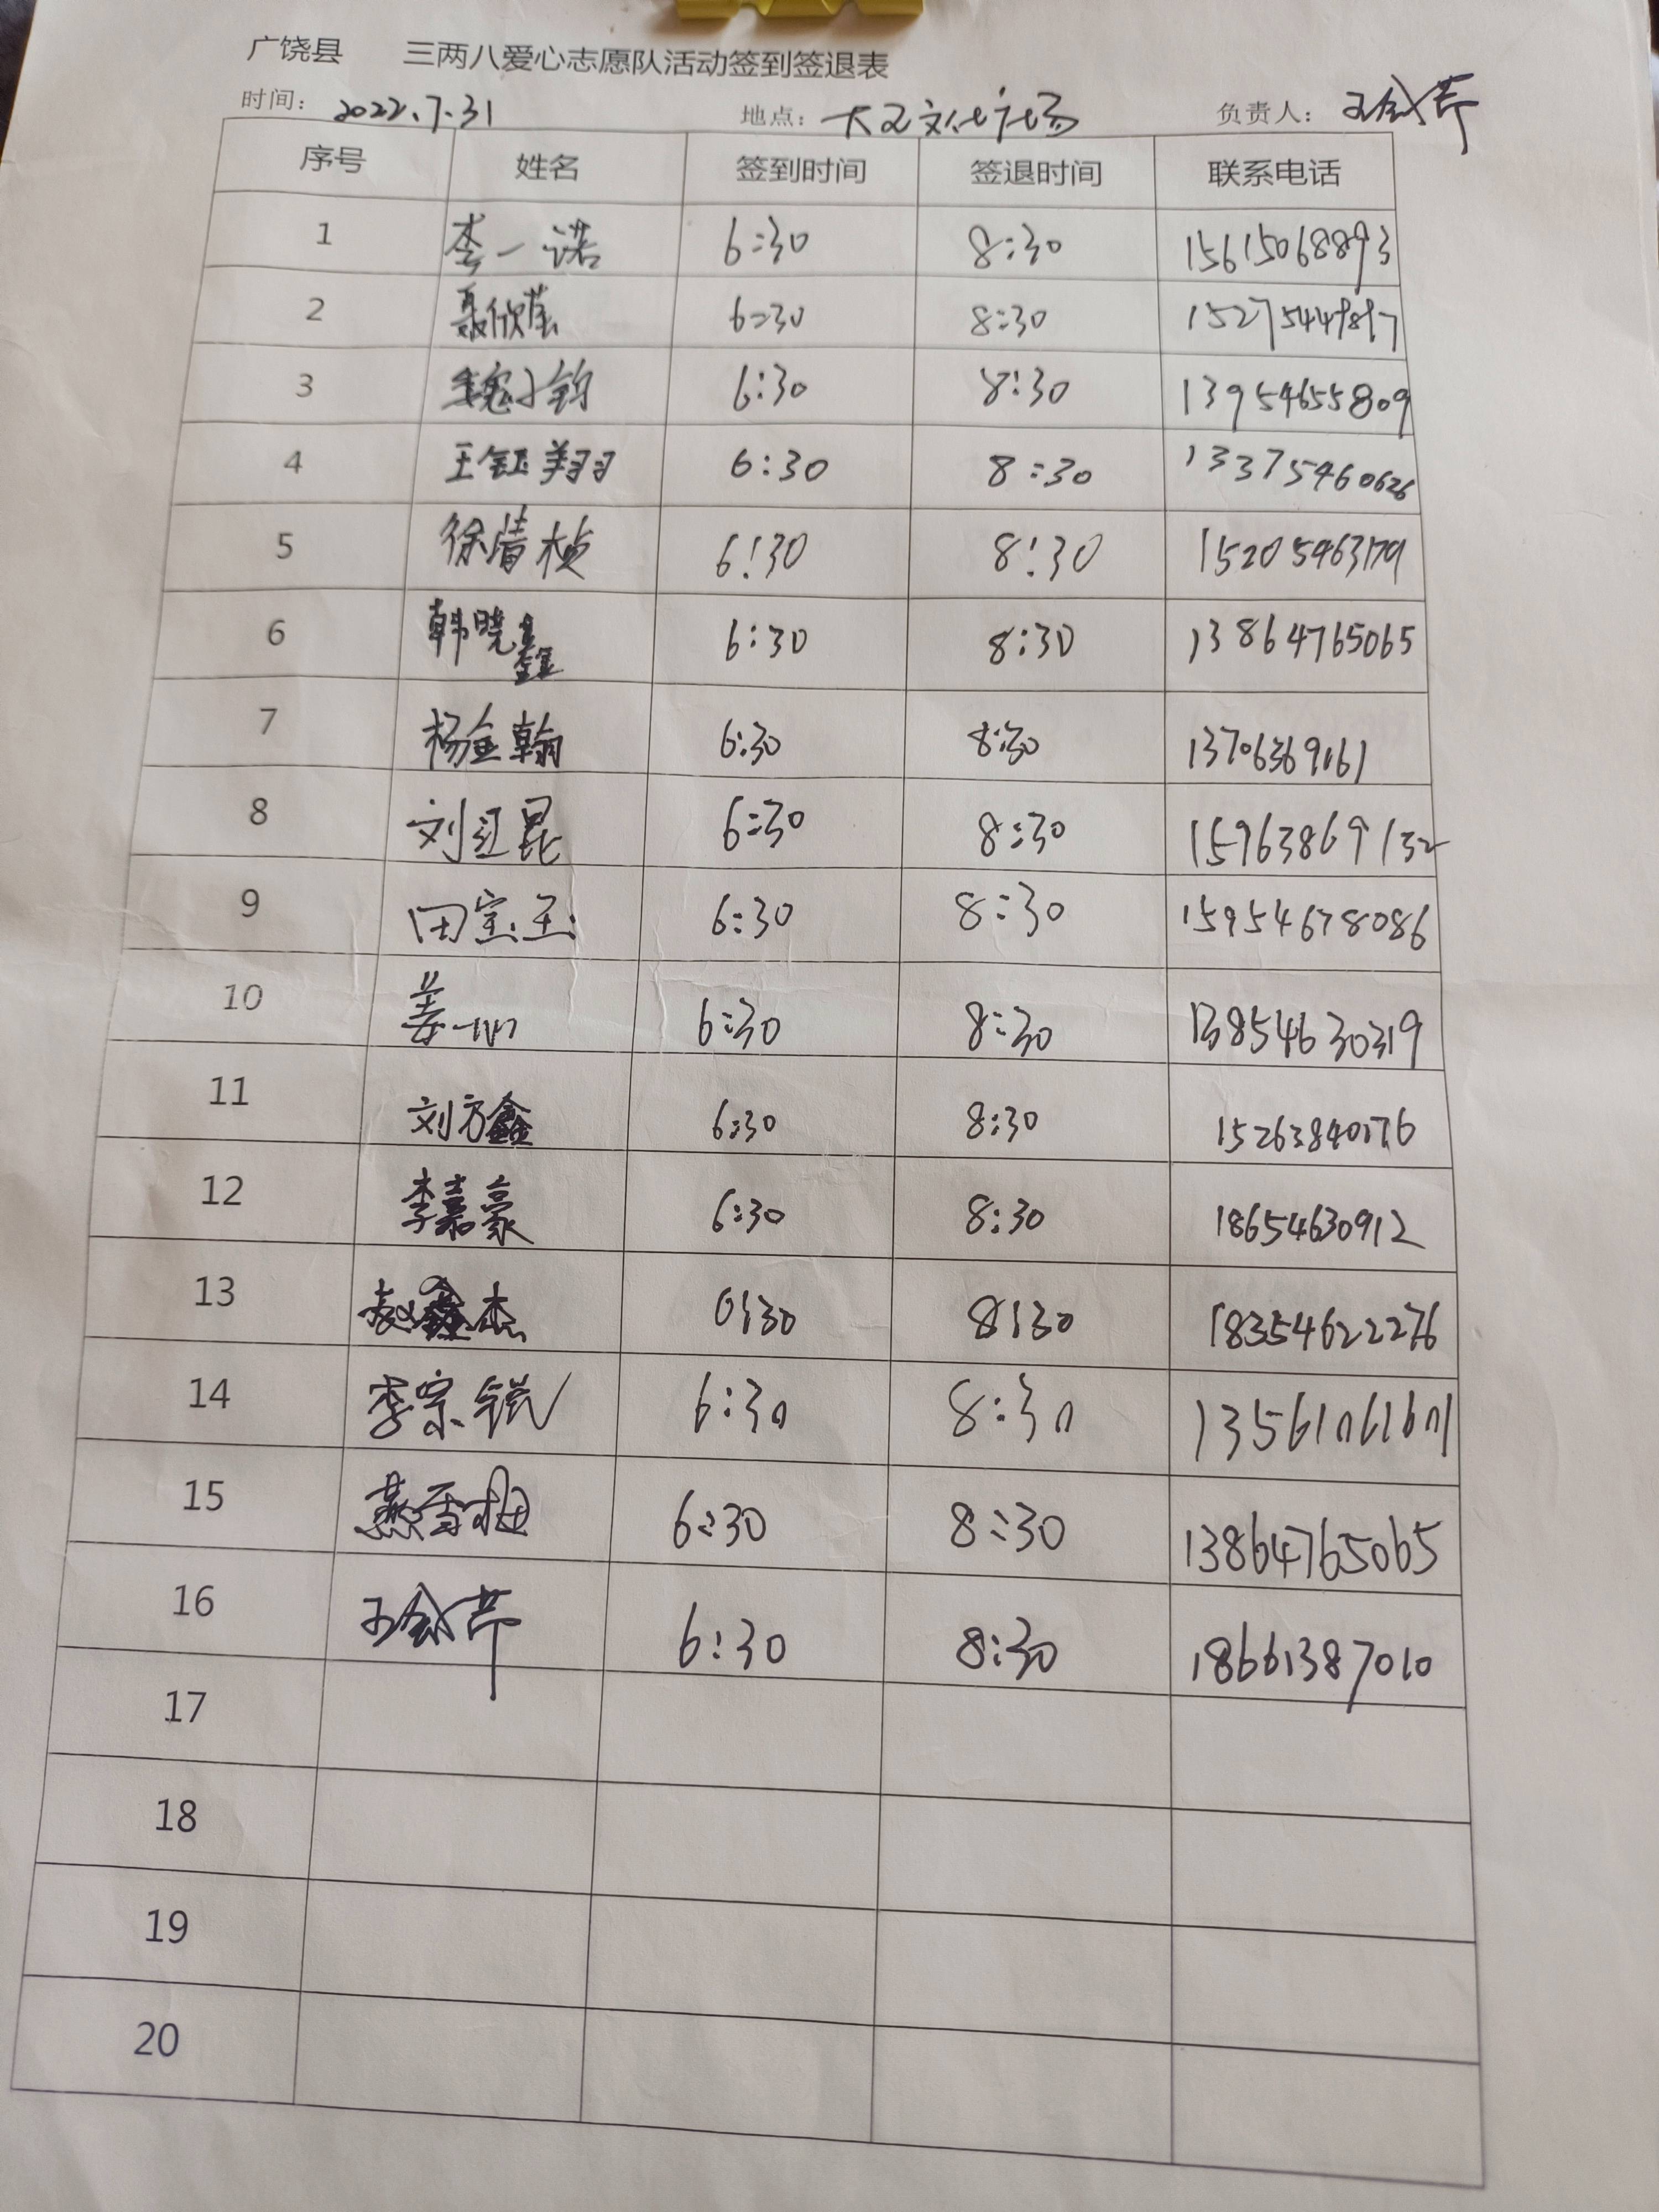 广饶县 三两八爱心志愿队活动签到签退表
时间： 2022.7.31 地点： 大王文化广场 负责人：
序号 姓名 签到时间 签退时间 联系电话
1 李一诺 6:30 8:30 15615068893
2 聂欣莹 6:30 8:30 15275449897
3 魏子钧 6:30 8:30 13954655809
4 王钰翔 6:30 8:30 13375460626
5 徐清桢 6:30 8:30 15205463179
6 韩晓鑫 6:30 8:30 13864765065
7 杨金翰 6:30 8:30 13706369161
8 刘红昆 6:30 8:30 15963869132
9 田宝玉 6:30 8:30 15954678086
10 姜一 6:30 8:30 13854630319
11 刘方鑫 6:30 8:30 15263840176
12 李嘉豪 6:30 8:30 18654630912
13 赵鑫杰 6:30 8:30 18354622276
14 李宗锐 6:30 8:30 13561061601
15 燕雪梅 6:30 8:30 13864765065
16 6:30 8:30 18661387010
17
18
19
20